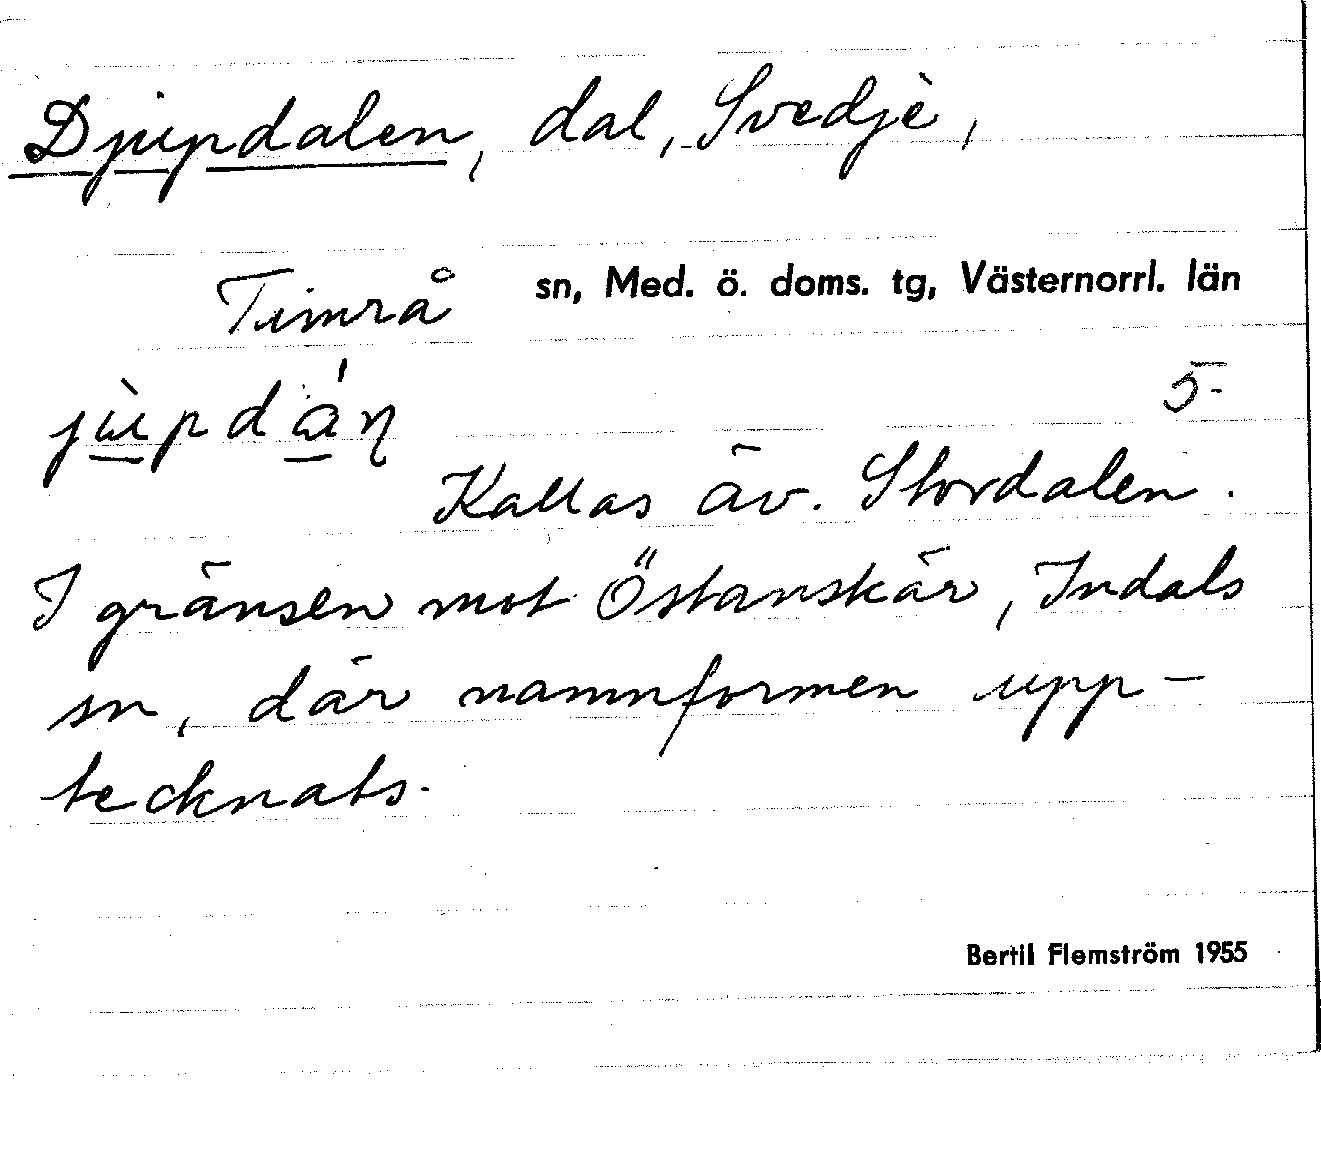 Djupdalen, dal, Svedje,
Timrå sn, Med. ö. doms. tg, Västernorrl. län
jùpdáη 5-
Kallas äv. Stordalen.
I gränsen mot Östanskär, Indals
sn, där namnformen upp-
tecknats.
Bertil Flemström 1955